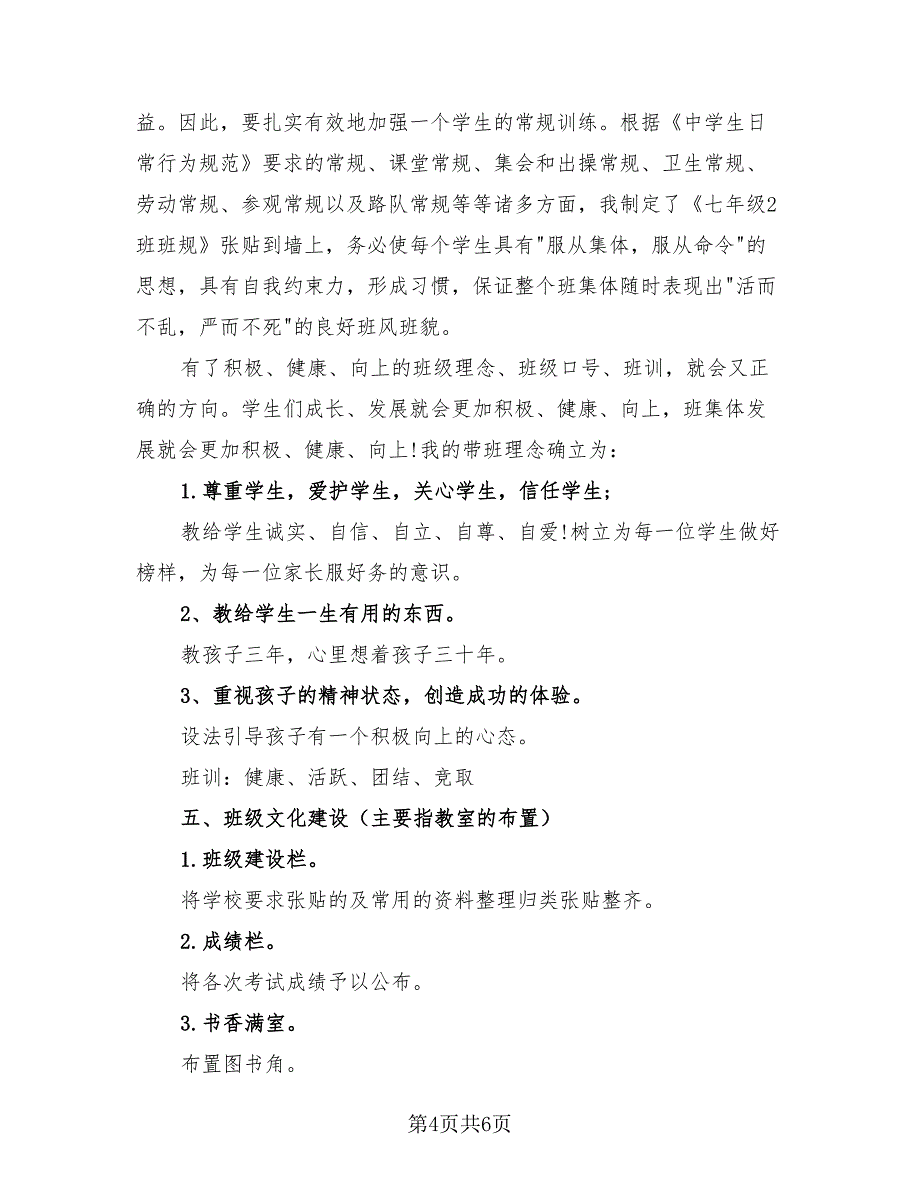 益。因此，要扎实有效地加强一个学生的常规训练。根据《中学生日
常行为规范》要求的常规、课堂常规、集会和出操常规、卫生常规、
劳动常规、参观常规以及路队常规等等诸多方面，我制定了《七年级2
班班规》张贴到墙上，务必使每个学生具有"服从集体，服从命令"的
思想，具有自我约束力，形成习惯，保证整个班集体随时表现出"活而
不乱，严而不死"的良好班风班貌。
有了积极、健康、向上的班级理念、班级口号、班训，就会又正
确的方向。学生们成长、发展就会更加积极、健康、向上，班集体发
展就会更加积极、健康、向上!我的带班理念确立为：
1.尊重学生，爱护学生，关心学生，信任学生;
教给学生诚实、自信、自立、自尊、自爱!树立为每一位学生做好
榜样，为每一位家长服好务的意识。
2、教给学生一生有用的东西。
教孩子三年，心里想着孩子三十年。
3、重视孩子的精神状态，创造成功的体验。
设法引导孩子有一个积极向上的心态。
班训：健康、活跃、团结、竞取
五、班级文化建设（主要指教室的布置）
1.班级建设栏。
将学校要求张贴的及常用的资料整理归类张贴整齐。
2.成绩栏。
将各次考试成绩予以公布。
3.书香满室。
布置图书角。
第4页共6页